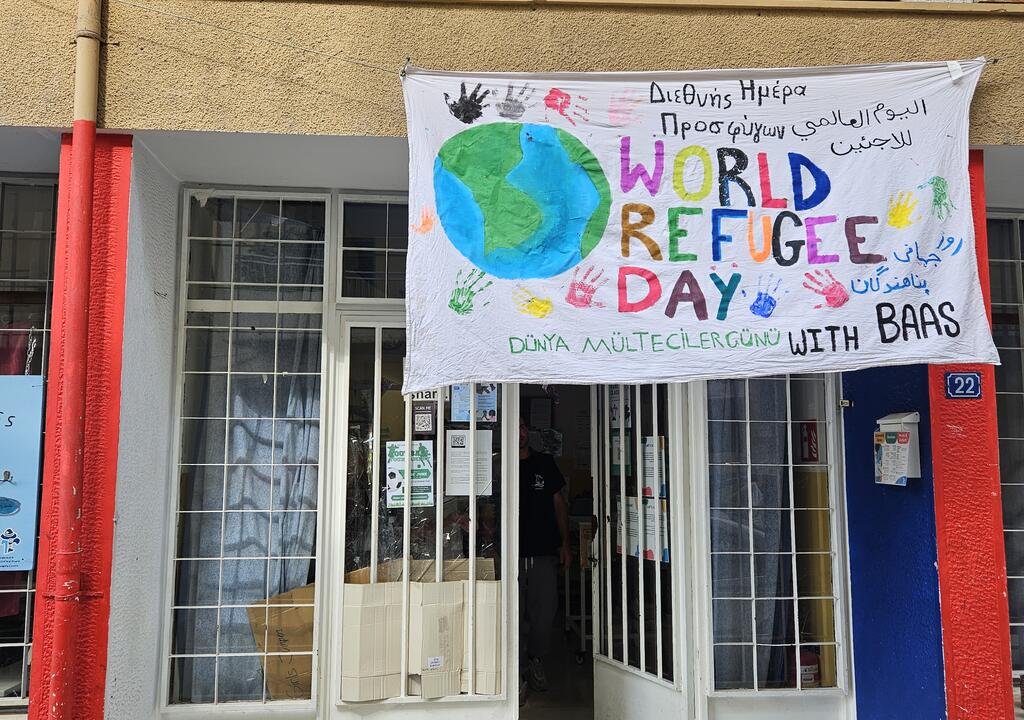 Διεθνής Ημέρα
Προσφύγων
اليوم العالمي
للاجئين
WORLD
REFUGEE
DAY
روز
جهانی
پناهندگان
DÜNYA MÜLTECİLERGÜNÜ
WITH BAAS
22
SCAN ME